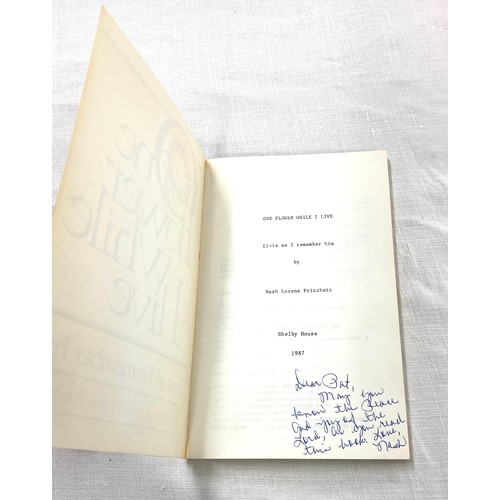 One
flower
while
I live
ONE FLOWER WHILE I LIVE
Elvis as I remember him
by
Nash Lorene Pritchett
Shelby House
1987
Dear Pat,
May you
know the Peace
and Joy of the
Lord, as you read
this book. Love,
Nash